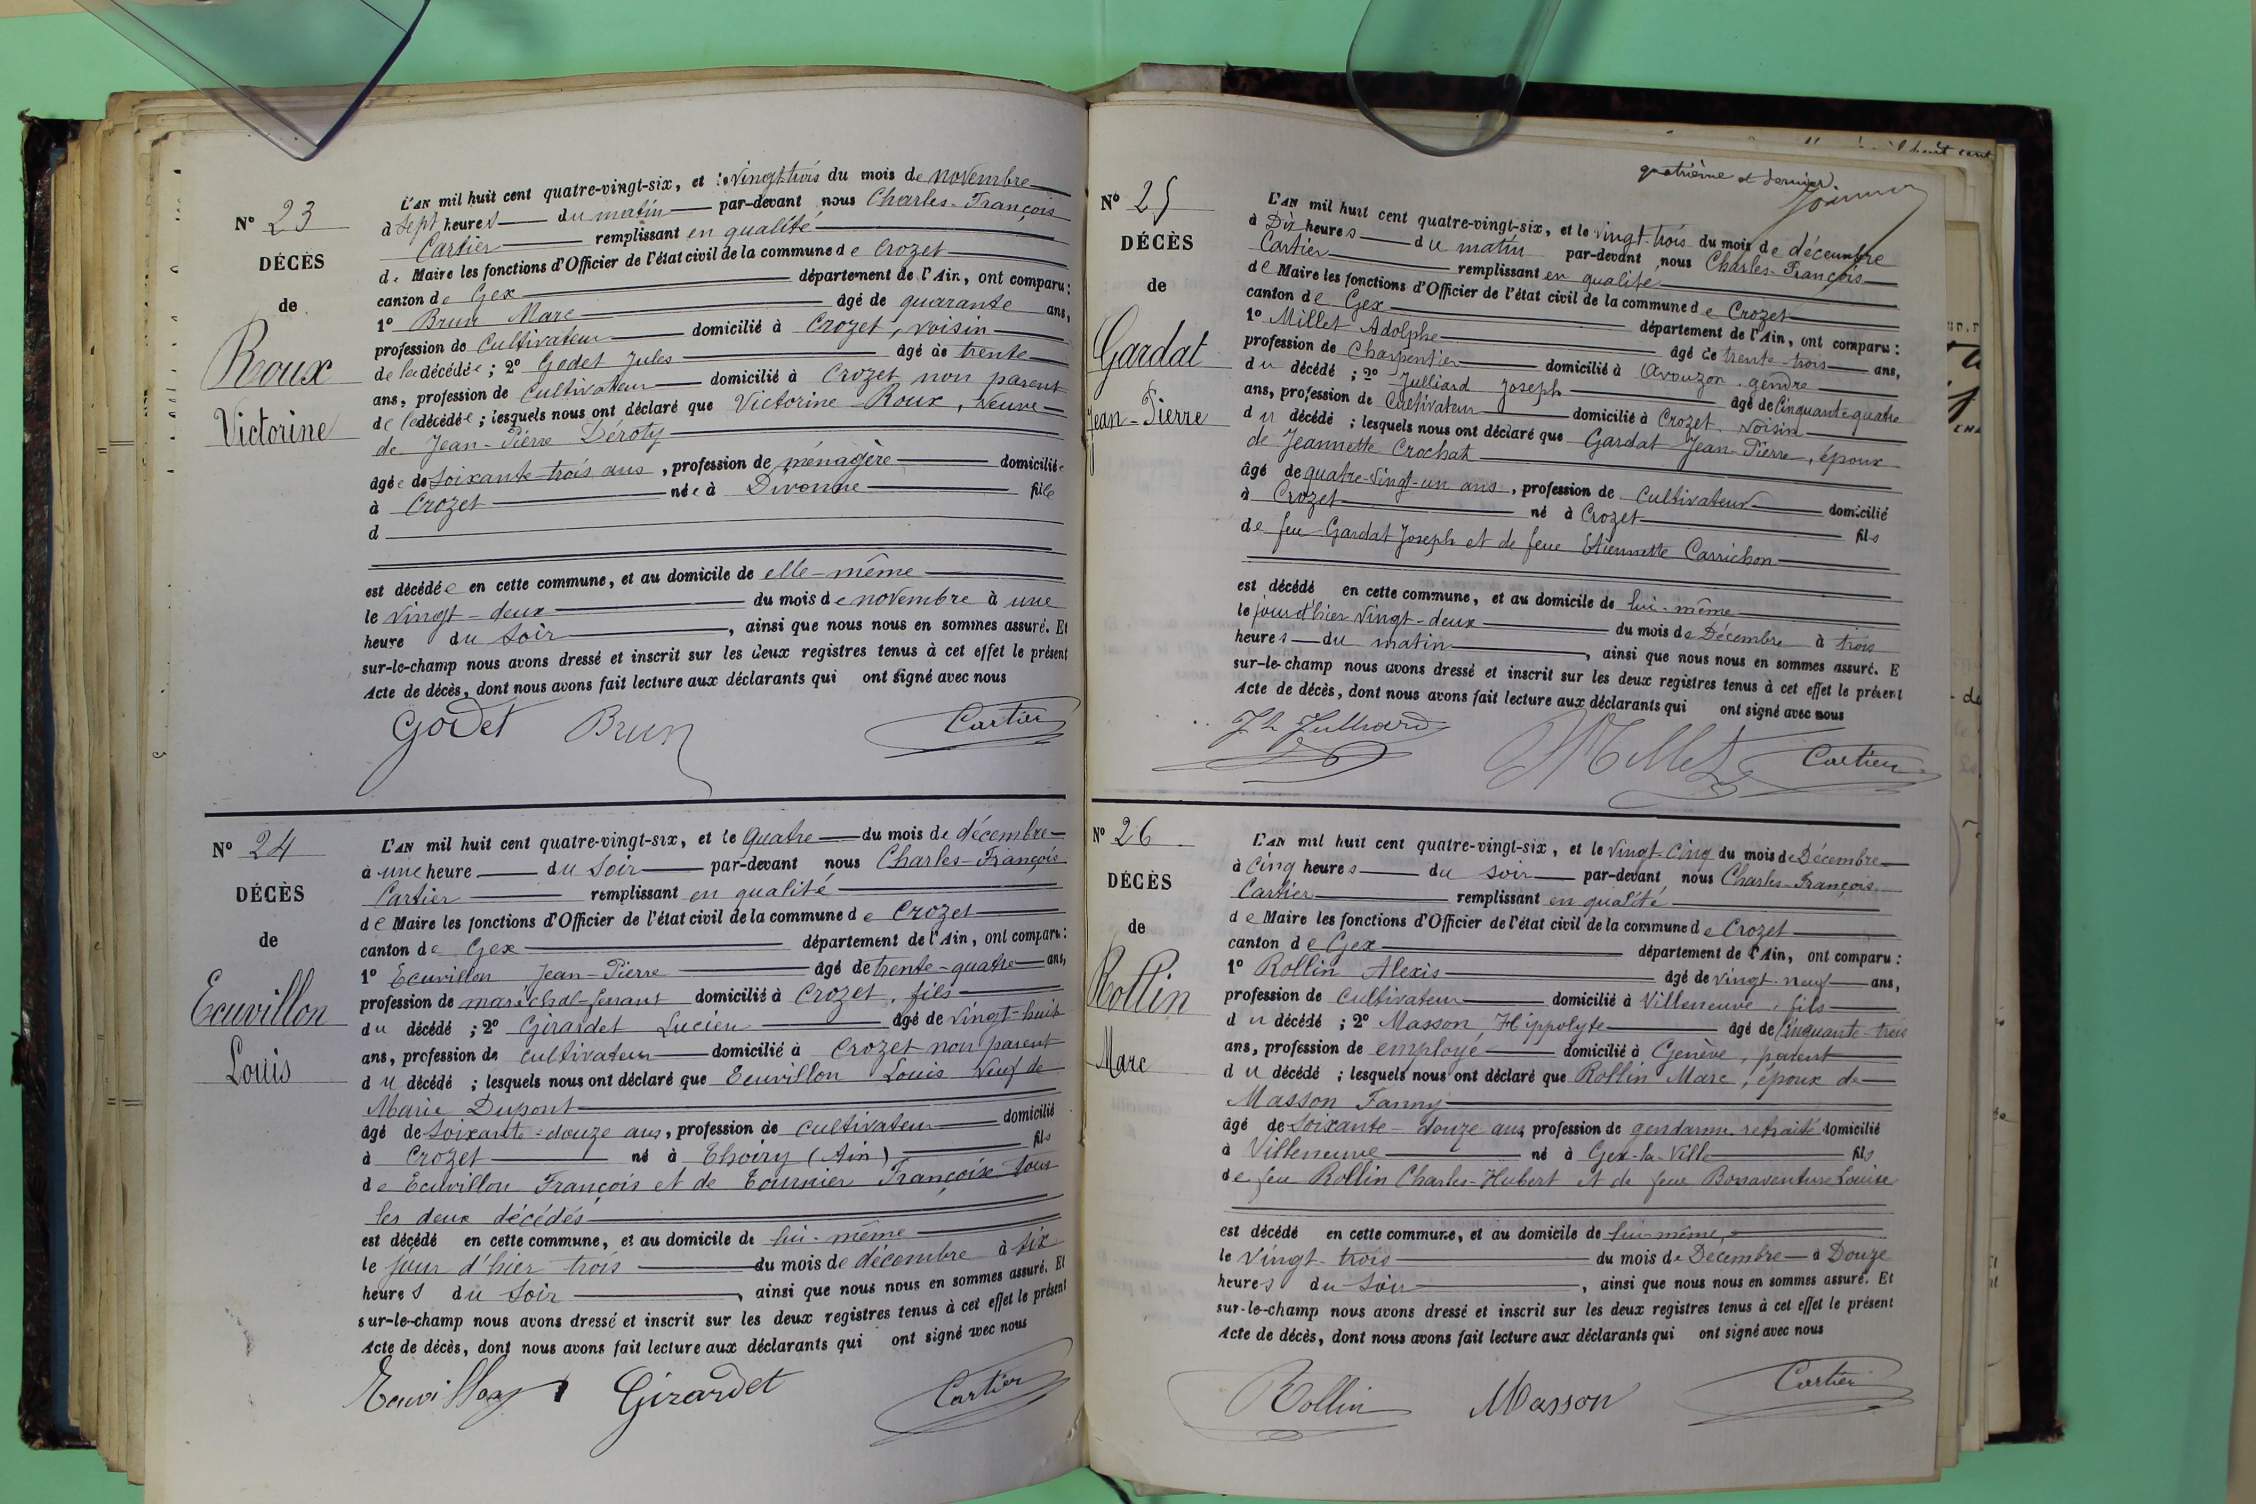 N° 23
DÉCÈS
de
Roux
Victorine
L'AN mil huit cent quatre-vingt-six, et le vingt-trois du mois de novembre
à sept heures du matin par-devant nous Charles-François
Cartier remplissant en qualité
de Maire les fonctions d'Officier de l'état civil de la commune de Crozet
canton de Gex département de l'Ain, ont comparu :
1° Brun Marc âgé de quarante ans,
profession de Cultivateur domicilié à Crozet, voisin
de la décédée ; 2° Godet Jules âgé de trente
ans, profession de cultivateur domicilié à Crozet non parent
de la décédée ; lesquels nous ont déclaré que Victorine Roux, veuve
de Jean-Pierre Déroty
âgée de soixante-trois ans, profession de ménagère domiciliée
à Crozet née à Divonne fille
d
est décédée en cette commune, et au domicile de elle-même
le vingt-deux du mois de novembre à une
heure du soir, ainsi que nous nous en sommes assuré. Et
sur-le-champ nous avons dressé et inscrit sur les deux registres tenus à cet effet le présent
Acte de décès, dont nous avons fait lecture aux déclarants qui ont signé avec nous
Godet Brun Cartier
N° 24
DÉCÈS
de
Ecuvillon
Louis
L'AN mil huit cent quatre-vingt-six, et le quatre du mois de décembre
à une heure du soir par-devant nous Charles-François
Cartier remplissant en qualité
de Maire les fonctions d'Officier de l'état civil de la commune de Crozet
canton de Gex département de l'Ain, ont comparu :
1° Ecuvillon Jean-Pierre âgé de trente-quatre ans,
profession de maréchal-ferrant domicilié à Crozet, fils
du décédé ; 2° Girardet Lucien âgé de vingt-huit
ans, profession de cultivateur domicilié à Crozet non parent
du décédé ; lesquels nous ont déclaré que Ecuvillon Louis veuf de
Marie Dupont
âgé de soixante-douze ans, profession de cultivateur domicilié
à Crozet né à Thoiry (Ain) fils
de Ecuvillon François et de Tournier Françoise tous
les deux décédés
est décédé en cette commune, et au domicile de lui-même
le jour d'hier trois du mois de décembre à six
heures du soir, ainsi que nous nous en sommes assuré. Et
sur-le-champ nous avons dressé et inscrit sur les deux registres tenus à cet effet le présent
Acte de décès, dont nous avons fait lecture aux déclarants qui ont signé avec nous
Ecuvillon Girardet Cartier
quatrième et dernier.
N° 25
DÉCÈS
de
Gardat
Jean-Pierre
L'AN mil huit cent quatre-vingt-six, et le vingt-trois du mois de décembre
à Dix heures du matin par-devant nous Charles-François
Cartier remplissant en qualité
de Maire les fonctions d'Officier de l'état civil de la commune de Crozet
canton de Gex département de l'Ain, ont comparu :
1° Millet Adolphe âgé de trente-trois ans,
profession de Charpentier domicilié à Avouzon, gendre
du décédé ; 2° Julliard Joseph âgé de Cinquante quatre
ans, profession de Cultivateur domicilié à Crozet voisin
du décédé ; lesquels nous ont déclaré que Gardat Jean-Pierre, époux
de Jeannette Crochat
âgé de quatre-vingt-un ans, profession de Cultivateur domicilié
à Crozet né à Crozet fils
de feu Gardat Joseph et de feue Etiennette Carrichon
est décédé en cette commune, et au domicile de lui-même
le jour d'hier vingt-deux du mois de Décembre à trois
heures du matin, ainsi que nous nous en sommes assuré. E
sur-le-champ nous avons dressé et inscrit sur les deux registres tenus à cet effet le présent
Acte de décès, dont nous avons fait lecture aux déclarants qui ont signé avec nous
Jh Julliard Millet Cartier
N° 26
DÉCÈS
de
Rollin
Marc
L'AN mil huit cent quatre-vingt-six, et le vingt-cinq du mois de Décembre
à cinq heures du soir par-devant nous Charles-François
Cartier remplissant en qualité
de Maire les fonctions d'Officier de l'état civil de la commune de Crozet
canton de Gex département de l'Ain, ont comparu :
1° Rollin Alexis âgé de vingt-neuf ans,
profession de cultivateur domicilié à Villeneuve, fils
du décédé ; 2° Masson Hippolyte âgé de cinquante-trois
ans, profession de employé domicilié à Genève, parent
du décédé ; lesquels nous ont déclaré que Rollin Marc, époux de
Masson Fanny
âgé de soixante-douze ans, profession de gendarme retraité domicilié
à Villeneuve né à Gex-la-Ville fils
de feu Rollin Charles-Hubert et de feue Bonaventure Louise
est décédé en cette commune, et au domicile de lui-même,
le vingt-trois du mois de Décembre à Douze
heures du soir, ainsi que nous nous en sommes assuré. Et
sur-le-champ nous avons dressé et inscrit sur les deux registres tenus à cet effet le présent
Acte de décès, dont nous avons fait lecture aux déclarants qui ont signé avec nous
Rollin Masson Cartier